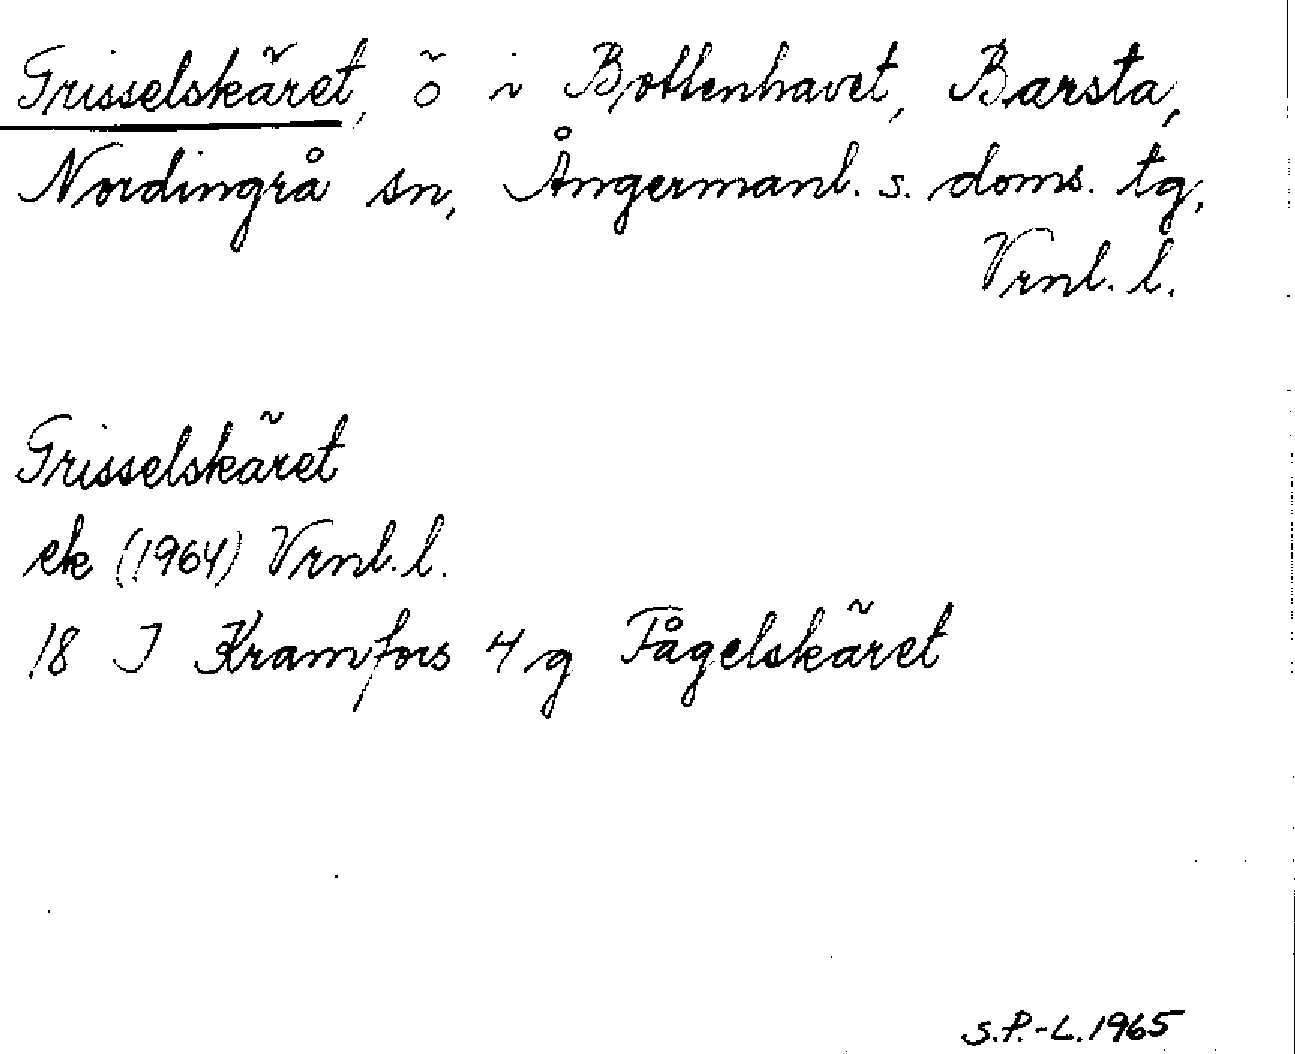 Grisselskäret, ö i Bottenhavet, Barsta,
Nordingrå sn, Ångermanl. s. doms. tg,
Vrnl. l.
Grisselskäret
ek (1964) Vrnl. l.
18 J Kramfors 4 g Fågelskäret
S.P.-L. 1965